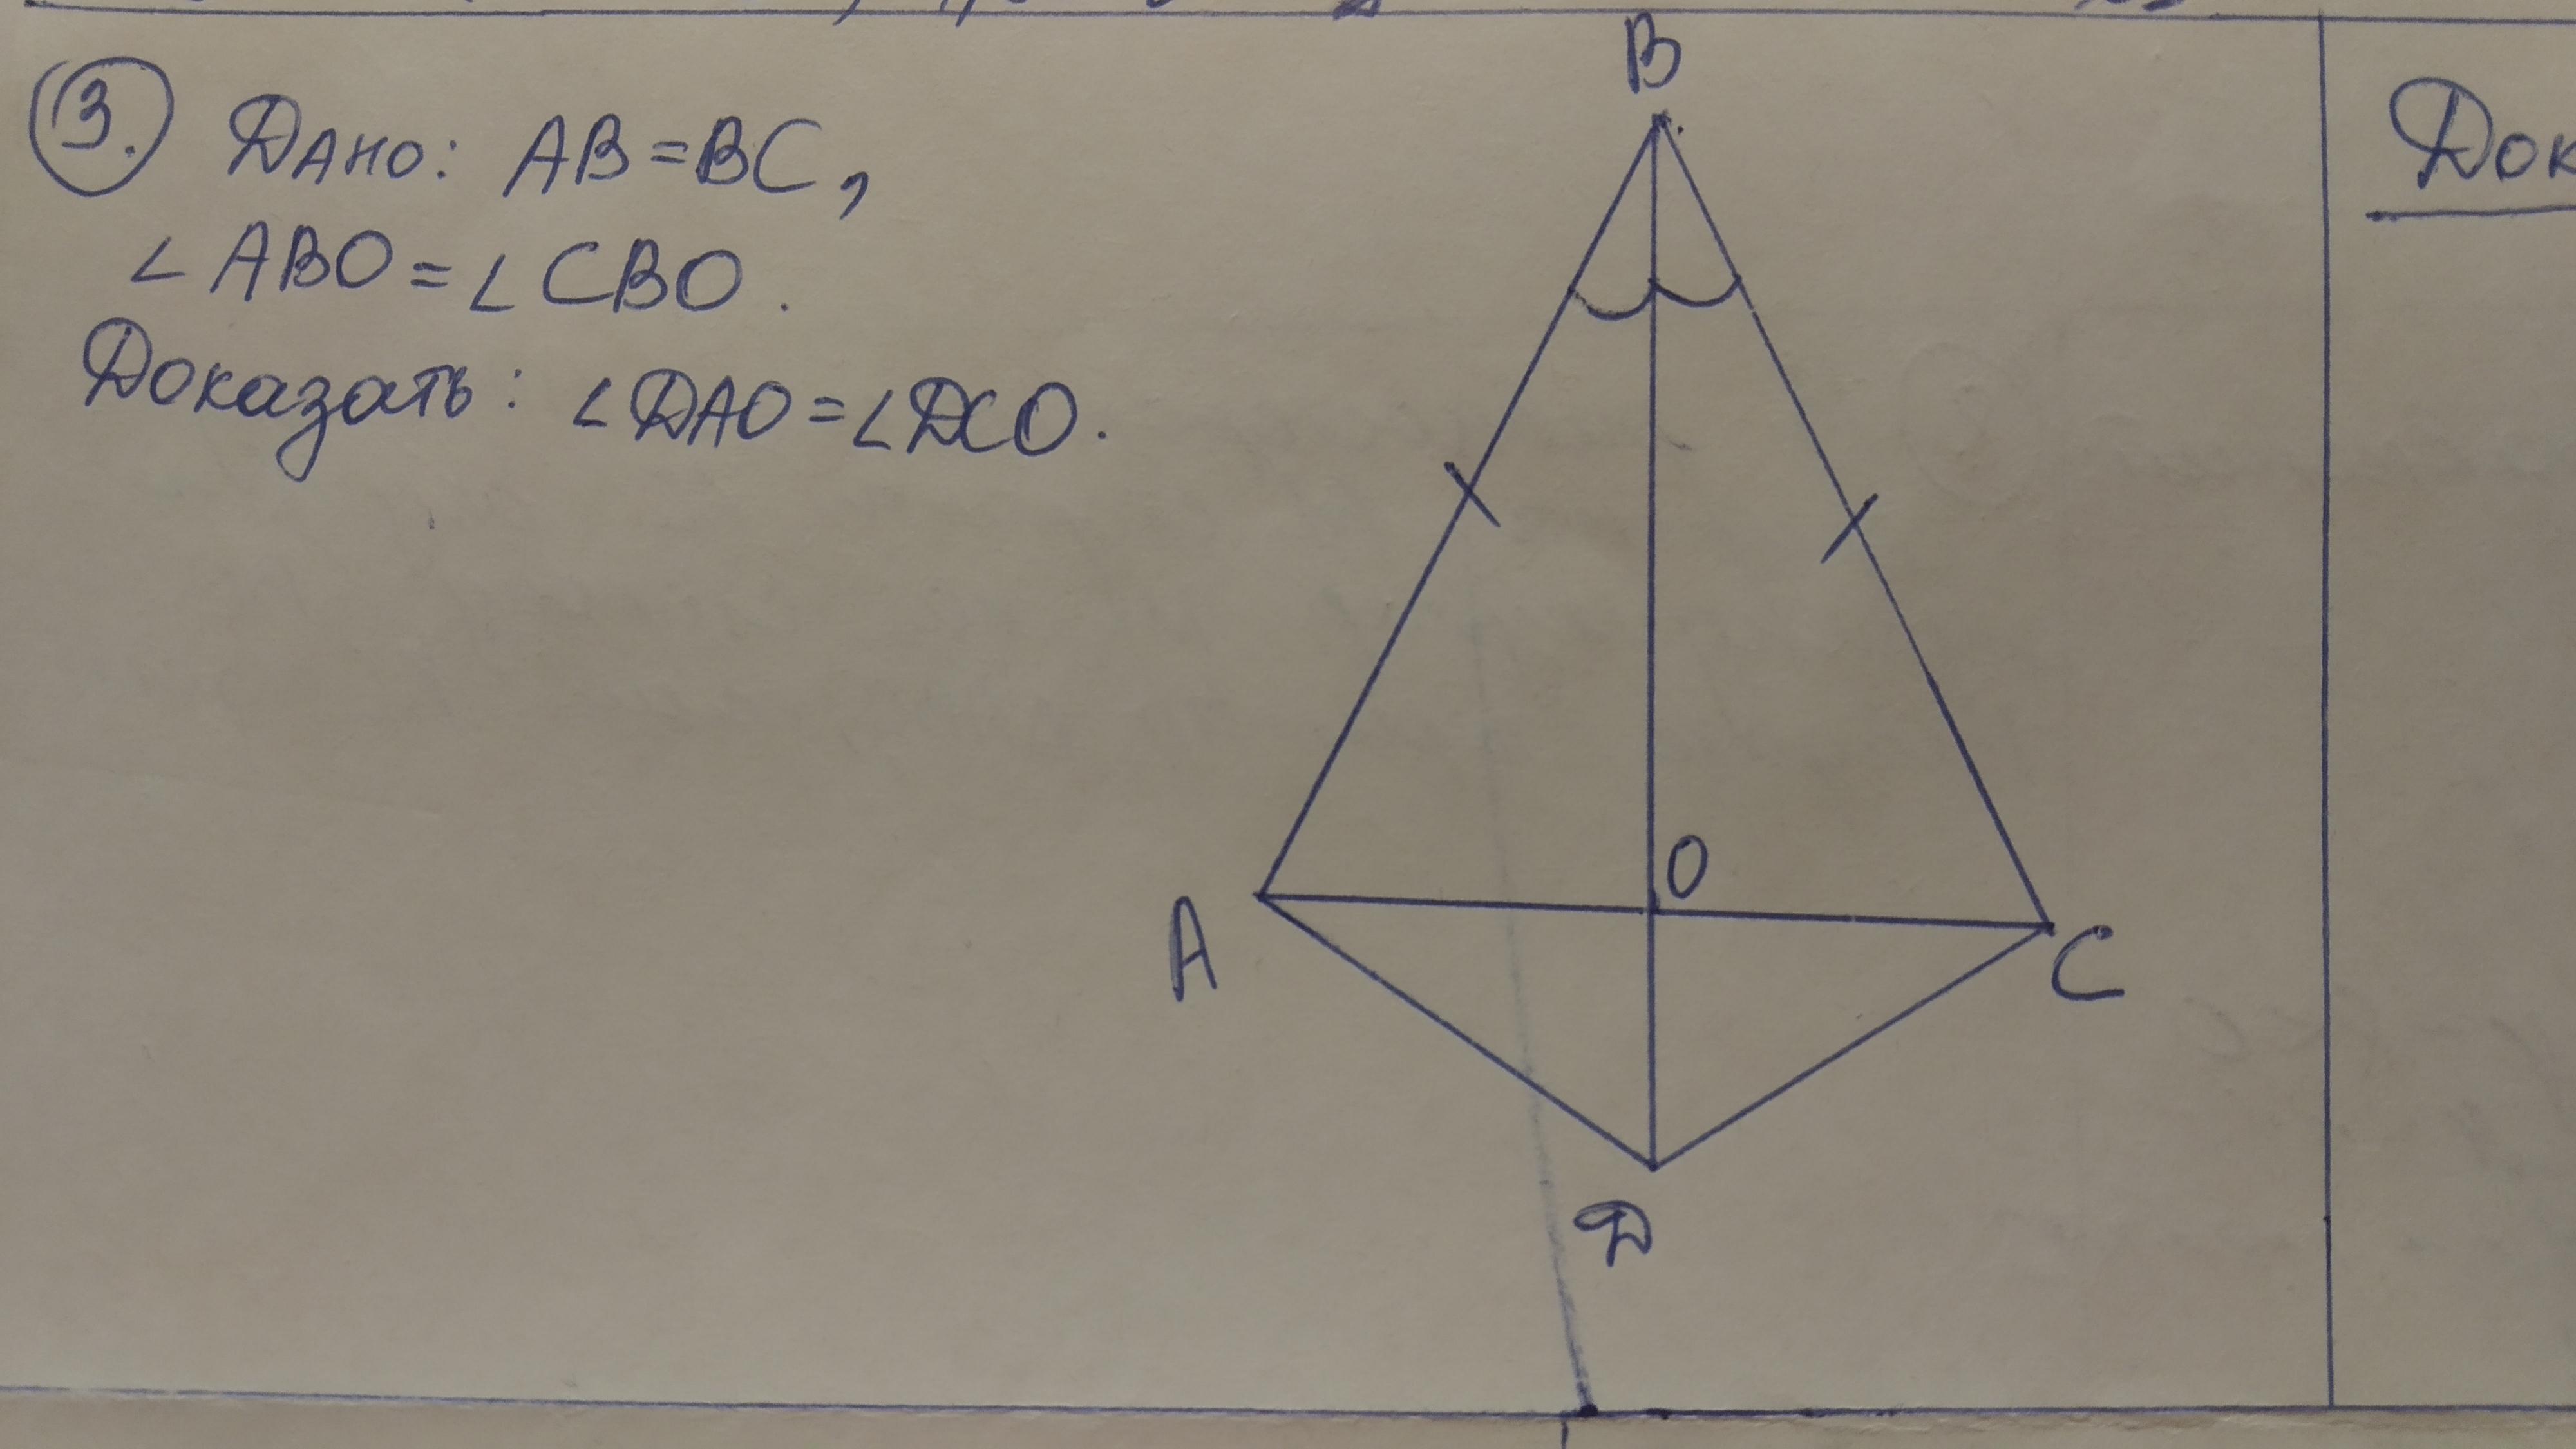 3. Дано: AB=BC,
∠ABO=∠CBO.
Доказать: ∠DAO=∠DCO.
B
O
A
C
D